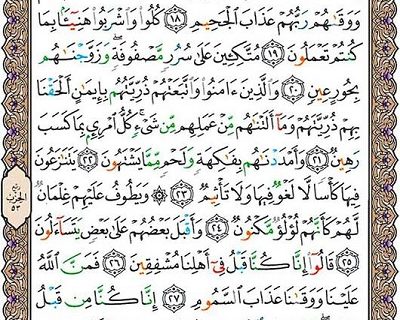 وَوَقَىٰهُمْ رَبُّهُمْ عَذَابَ ٱلْجَحِيمِ ١٨ كُلُوا۟ وَٱشْرَبُوا۟ هَنِيٓـًٔۢا بِمَا
كُنتُمْ تَعْمَلُونَ ١٩ مُتَّكِـِٔينَ عَلَىٰ سُرُرٍ مَّصْفُوفَةٍ ۖ وَزَوَّجْنَـٰهُم
بِحُورٍ عِينٍ ٢٠ وَٱلَّذِينَ ءَامَنُوا۟ وَٱتَّبَعَتْهُمْ ذُرِّيَّتُهُم بِإِيمَـٰنٍ أَلْحَقْنَا
بِهِمْ ذُرِّيَّتَهُمْ وَمَآ أَلَتْنَـٰهُم مِّنْ عَمَلِهِم مِّن شَىْءٍ ۚ كُلُّ ٱمْرِئٍۭ بِمَا كَسَبَ
رَهِينٌ ٢١ وَأَمْدَدْنَـٰهُم بِفَـٰكِهَةٍ وَلَحْمٍ مِّمَّا يَشْتَهُونَ ٢٢ يَتَنَـٰزَعُونَ
فِيهَا كَأْسًا لَّا لَغْوٌ فِيهَا وَلَا تَأْثِيمٌ ٢٣ ۞ وَيَطُوفُ عَلَيْهِمْ غِلْمَانٌ
لَّهُمْ كَأَنَّهُمْ لُؤْلُؤٌ مَّكْنُونٌ ٢٤ وَأَقْبَلَ بَعْضُهُمْ عَلَىٰ بَعْضٍ يَتَسَآءَلُونَ
٢٥ قَالُوٓا۟ إِنَّا كُنَّا قَبْلُ فِىٓ أَهْلِنَا مُشْفِقِينَ ٢٦ فَمَنَّ ٱللَّهُ
عَلَيْنَا وَوَقَىٰنَا عَذَابَ ٱلسَّمُومِ ٢٧ إِنَّا كُنَّا مِن قَبْلُ
ربع
الحزب
٥٣